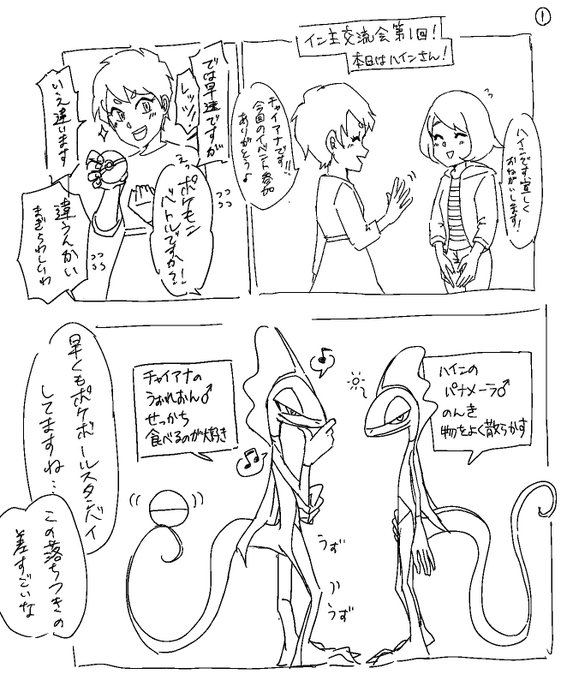 ①
イン主交流会第1回!
本日はハインさん!
ハインです宜しく
おねがいします!
チャイアナです!!
今回のイベント参加
ありがとうよ
では早速ですが
レッツ!
えっポケモン
バトルですか?!
いえ違います
違うんかい
まぎらわしいわ
ハインの
パナメーラ♂
のんき
物をよく散らかす
チャイアナの
うぉれおん♂
せっかち
食べるのが大好き
うず
うず
早くもポケボールスタンバイ
してますね…
この落ちつきの
差すごいな